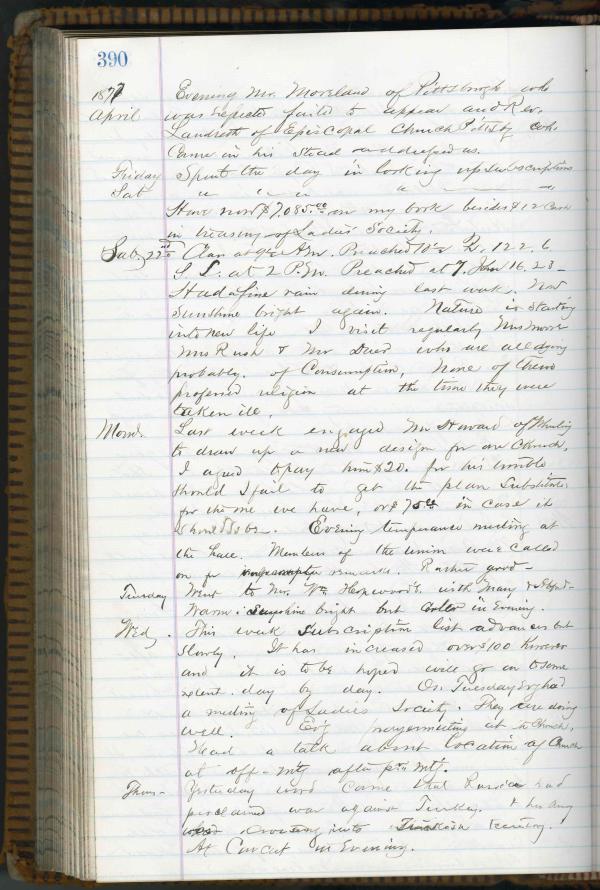 390
1877 Evening Mr. Moreland of Pittsburgh who
April was expected failed to appear and Rev.
Landreth of Episcopal Church Pittsbg who
Came in his stead addressed us.
Friday Spent the day in looking up Subscriptions
Sat " " " " "
Have now $7,085.00 on my book besides $12 Cash
in treasury of Ladies Society.
Sab, 22nd Class at 9½ A.M. Preached 10½ 12 2. 6
S. S. at 2 P.M. Preached at 7. John 16. 23 -
Had a fine rain during last week. Now
Sunshine bright again. Nature is starting
into new life I visit regularly Mrs
Mrs Rush & Mr who are all dying
probably. of Consumption, None of them
professed religion at the time they were
taken ill.
Mond. Last week engaged Mr Howard of Wheeling
to draw up a new design for our Church,
I agreed to pay him $20. for his trouble
should I fail to get the plan Substituted
for the one we have, or $75.00 in case it
should so be. Evening temperance meeting at
the hall. Members of the union were called
on for remarks. Rather good -
Tuesday Went to Mr. Wm Hopwood's with Mary &
Warm. Sunshine bright but Cooler in Evening.
Wed, This week Subscription list advances but
slowly. It has increased over $100 however
and it is to be hoped will go on to some
extent day by day. On Tuesday Evg had
a meeting of Ladies Society. They are doing
well. Evg prayermeeting at the Church,
Had a talk about location of Church
at off-mtg after pra mtg.
Thurs - Yesterday word came that Russia had
proclaimed war against Turkey, & her army
was crossing into Turkish territory.
At Concert in Evening.